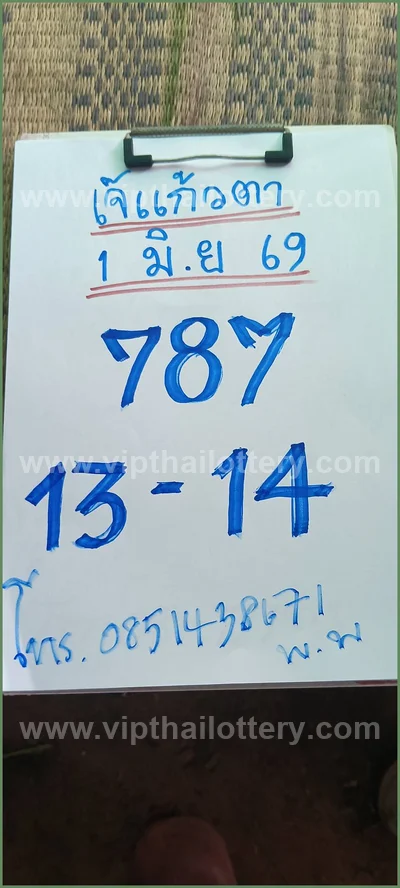 www.vipthailottery.com
เจ๊แก้วตา
1 มิ.ย 69
787
www.vipthailottery.com
13-14
โทร. 0851438671
พ.พ
www.vipthailottery.com